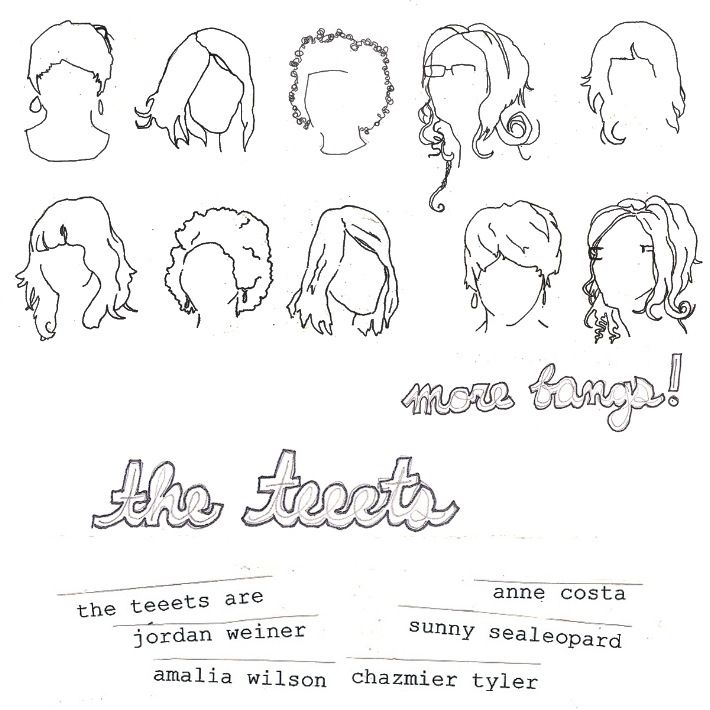 more bangs!
the teeets
the teeets are
jordan weiner
amalia wilson
anne costa
sunny sealeopard
chazmier tyler